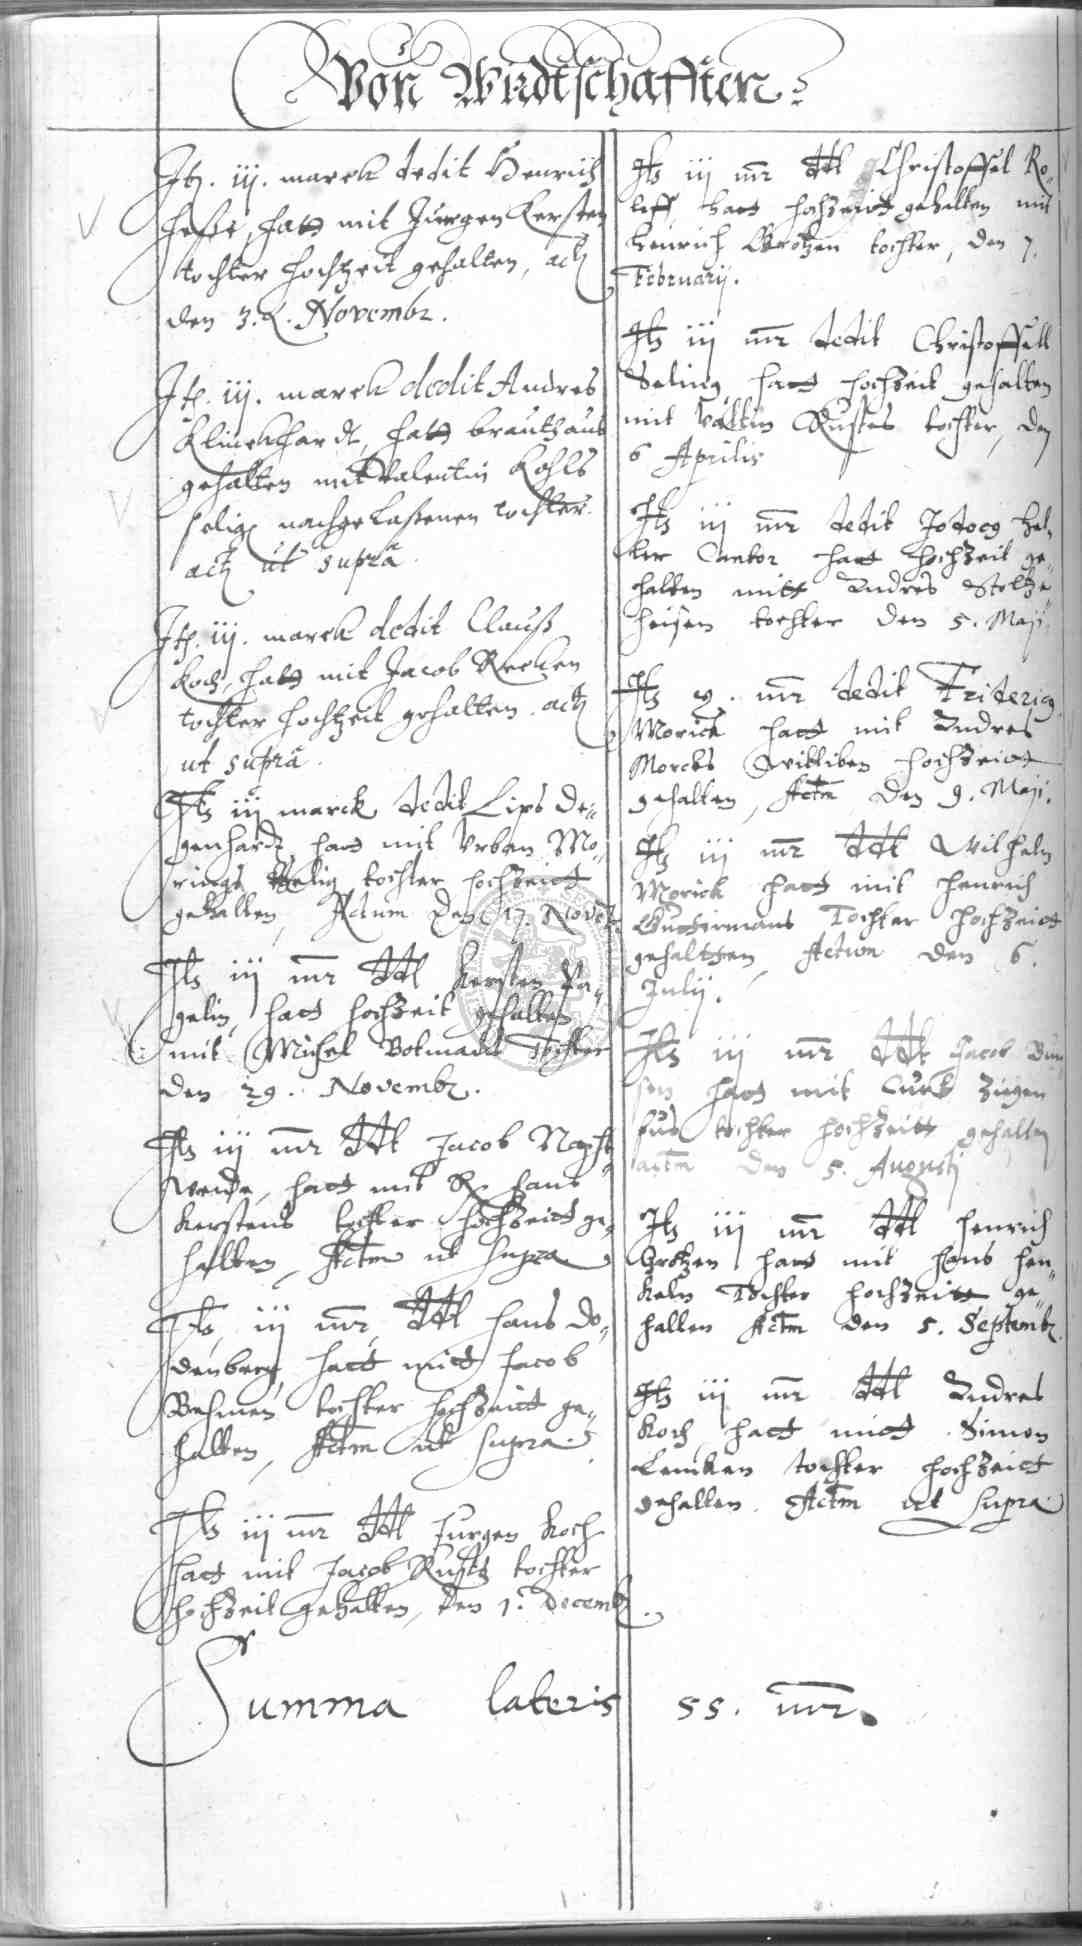 Von Wirdtschafften
Jtz. iij. marck dedit Henrich
Hesse, hatt mit Jurgen Kersten
tochter hochtzeit gehalten, actz
den 3. Novembr.
Jtz. iij. marck dedit Andres
Klinckhardt, hatt brauthaus
gehalten mit Valentin Kohls
selige nachgelaßenen tochter.
actz ut supra
Jtz. iij. marck dedit Clauß
Koch, hatt mit Jacob Recken
tochter hochtzeit gehalten. actz
ut supra.
Jtz iij marck dedit Lips De-
genhardt, hatt mit Urban Mo-
rings selig tochter hochzeitt
gehalten, Actum den 17. Novembr
Jtz iij mr ddt Kersten Va-
gelin, hatt hochzeit gehalten
mit Michel Volmades Tochter
den 29. Novembr.
Jtz iij mr ddt Jacob Napff-
weide, hatt mit Hans
Kerstens tochter hochzeitt ge-
halten, Actm ut supra
Jtz iij mr, ddt Hans Do-
denberg, hatt mitt Jacob
Behmen tochter hochzeitt ge-
halten, Actm ut supra.
Jtz iij mr ddt Jurgen Koch
hatt mit Jacob Rusts tochter
hochzeit gehalten, den 1. Decembr.
Jtz iij mr ddt Christoffel Ro-
leff, hatt hochzeitt gehalten mit
Henrich Grotzen tochter, den 7.
Februarij.
Jtz iij mr dedit Christoffell
Seling hatt hochzeit gehalten
mit Valtin Rustes tochter, den
6 Aprilis
Jtz iij mr dedit Jodocg Hel-
ler Cantor hatt hochzeit ge-
halten mitt Andres Stoltze
heisen tochter den 5. Maji.
Jtz mr dedit Friderig
Morick hatt mit Andres
Morcks Wittiben hochzeitt
gehalten, Actm den 9. Maji.
Jtz iij mr ddt Wilhelm
Morick hatt mit Henrich
Tochter hochzeitt
gehaltten, Action den 6.
Julij.
Jtz iij mr ddt Jacob Bun-
sen hatt mit Curt Ziegen
fus tochter hochzeitt gehalten
actm den 5. Augusti
Jtz iij mr ddt Henrich
Grotzen hatt mit Hans Hen-
keln Tochter hochzeitt ge-
halten Actm den 5. Septembr.
Jtz iij mr ddt Andres
Koch hatt mitt Simon
Lemken tochter hochzeitt
gehalten. Actm ut supra
Summa lateris 55. mr.